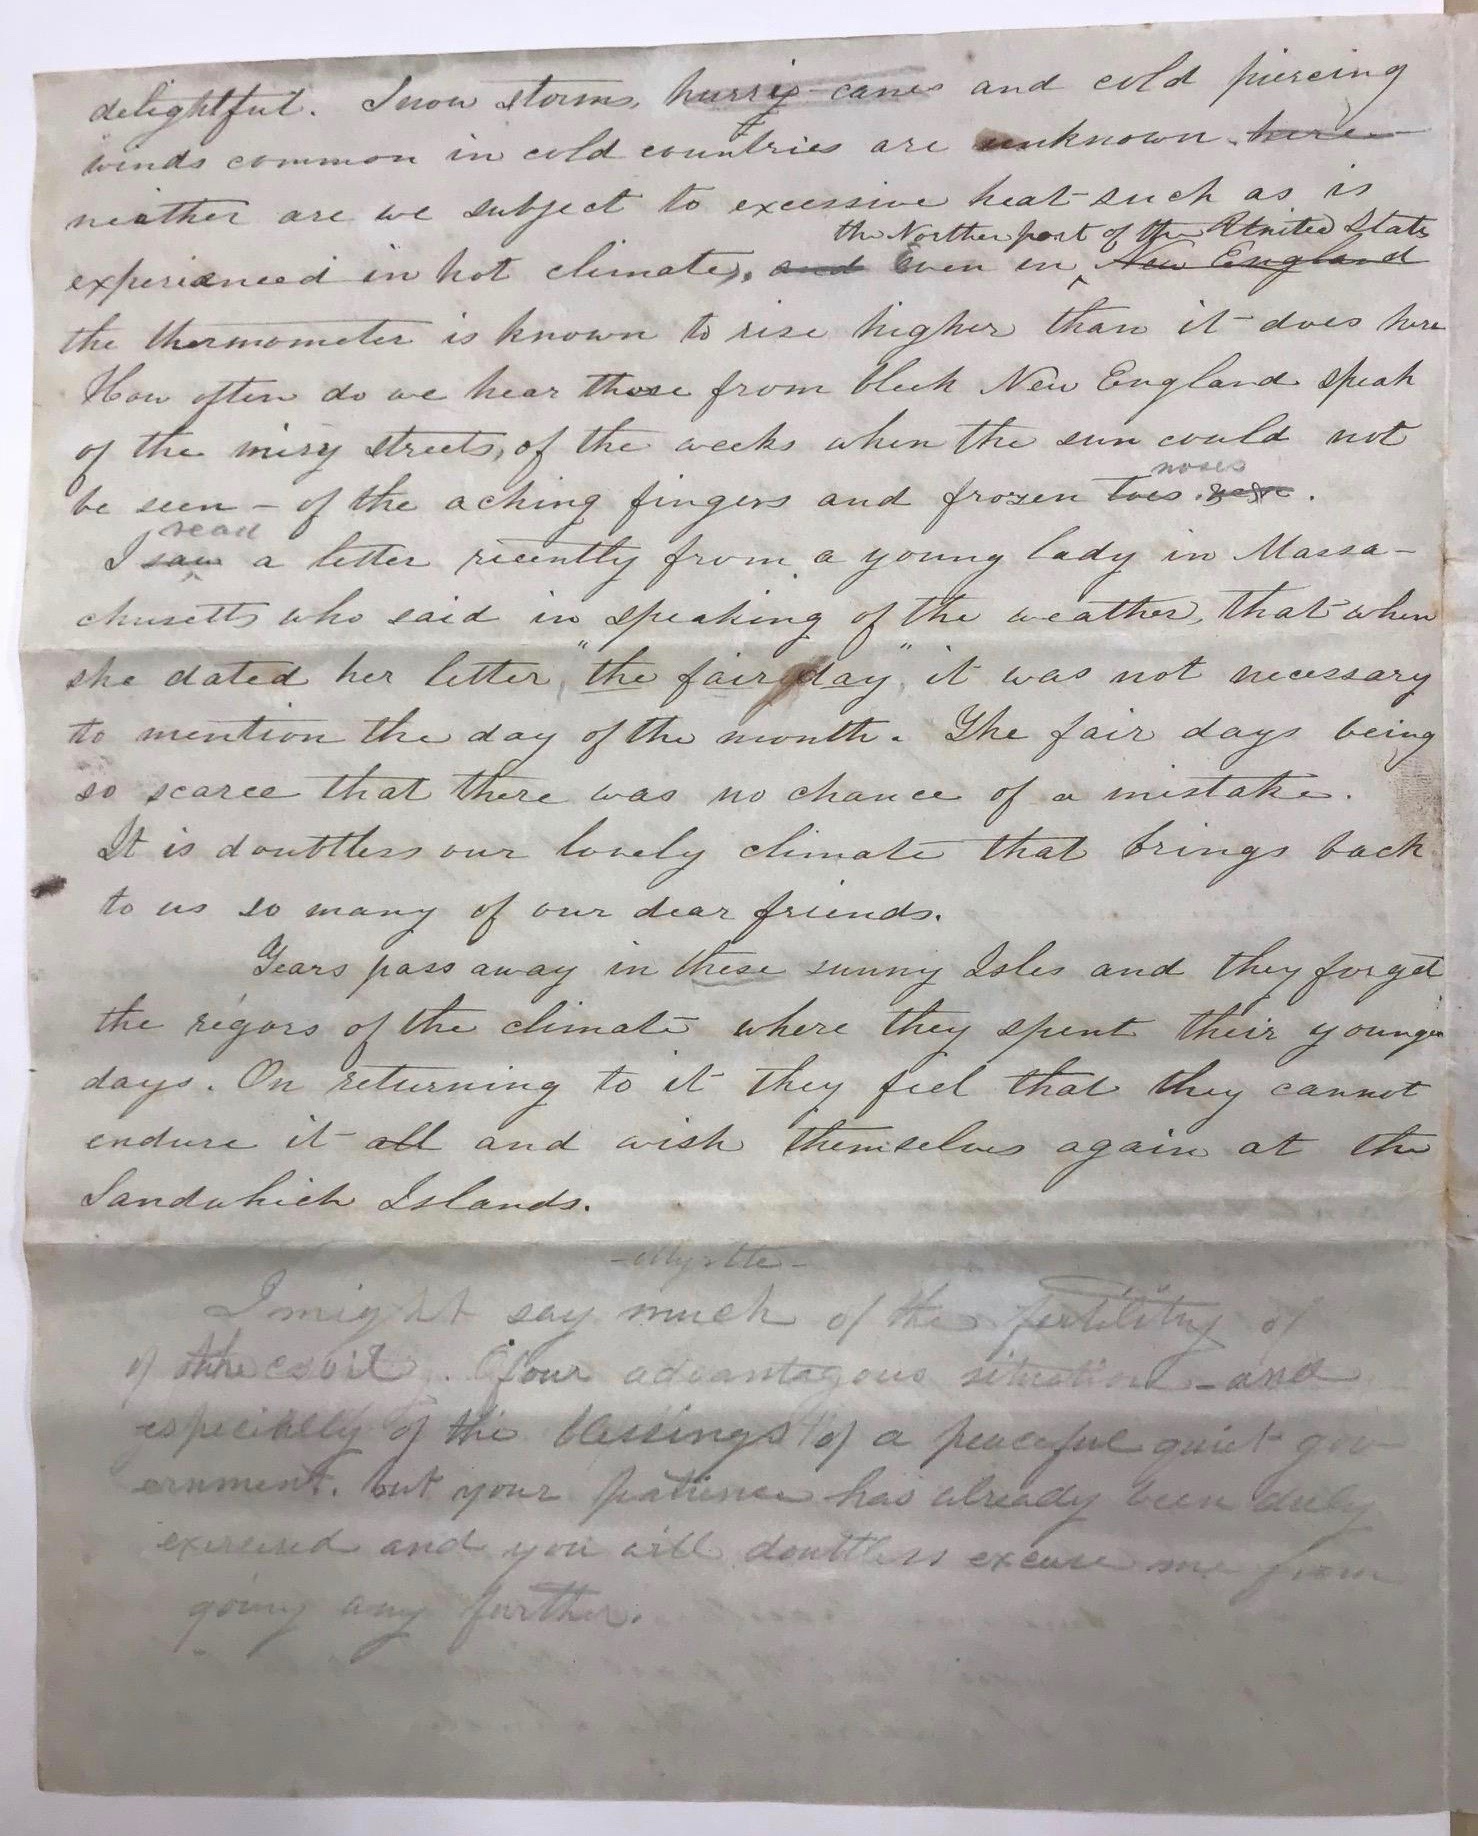 delightful. Snow storms, hurri-canes and cold piercing
winds common in cold countries are unknown. here
neither are we subject to excessive heat such as is
the Northern part of the United States
experienced in hot climates, and Even in New England
the thermometer is known to rise higher than it does here
How often do we hear those from bleek New England speak
of the miry streets, of the weeks when the sun could not
noses
be seen - of the aching fingers and frozen toes.
read
I saw a letter recently from a young lady in Massa-
chusetts who said in speaking of the weather, that when
she dated her letter, "the fair day", it was not necessary
to mention the day of the month. The fair days being
so scarce that there was no chance of a mistake.
It is doubtless our lovely climate that brings back
to us so many of our dear friends.
Years pass away in these sunny Isles and they forget
the rigors of the climate where they spent their younger
days. On returning to it they feel that they cannot
endure it all and wish themselves again at the
Sandwhich Islands.
-Myrtle-
I might say much of the fertility of
of the soil. Of our advantagous situation - and
especially of the blessings of a peaceful quiet gov-
ernment. but your patience has already been duly
exercised and you will doubtless excuse me from
going any further.